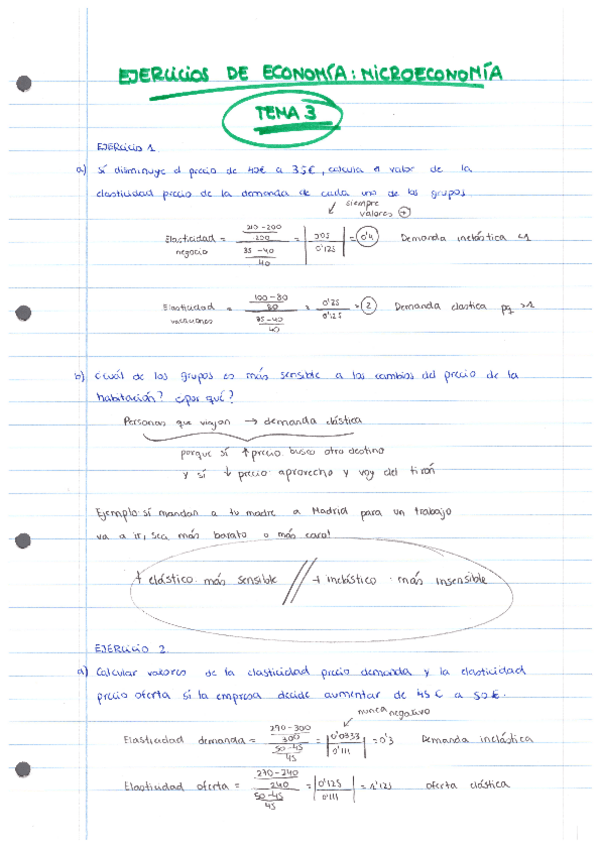 EJERCICIOS DE ECONOMÍA: MICROECONOMÍA
TEMA 3
EJERCICIO 1
a) Sí disminuye el precio de 40€ a 35€, calcula el valor de la
elasticidad precio de la demanda de cada uno de los grupos.
siempre
valores +
Elasticidad negocio = (210-200 / 200) / (35-40 / 40) = | / 0'125 | = 0'4 Demanda inelástica <1
Elasticidad vacaciones = (100-80 / 80) / (35-40 / 40) = 0'25 / 0'125 = 2 Demanda elastica pq >1
b) ¿cuál de los grupos es más sensible a los cambios del precio de la
habitación? ¿por qué?
Personas que viajan → demanda elástica
porque sí ↑ precio busco otro destino
y sí ↓ precio aprovecho y voy del tirón
Ejemplo: sí mandan a tu madre a Madrid para un trabajo
va a ir, sea más barato o más caro!
+ elástico más sensible // + inelástico : más insensible
EJERCICIO 2.
a) Calcular valores de la elasticidad precio demanda y la elasticidad
precio oferta si la empresa decide aumentar de 45€ a 50€.
nunca negativo
Elasticidad demanda = (290-300 / 300) / (50-45 / 45) = | 0'0333 / 0'111 | = 0'3 Demanda inelástica
Elasticidad oferta = (270-240 / 240) / (50-45 / 45) = | 0'125 / 0'111 | = 1'125 oferta elástica